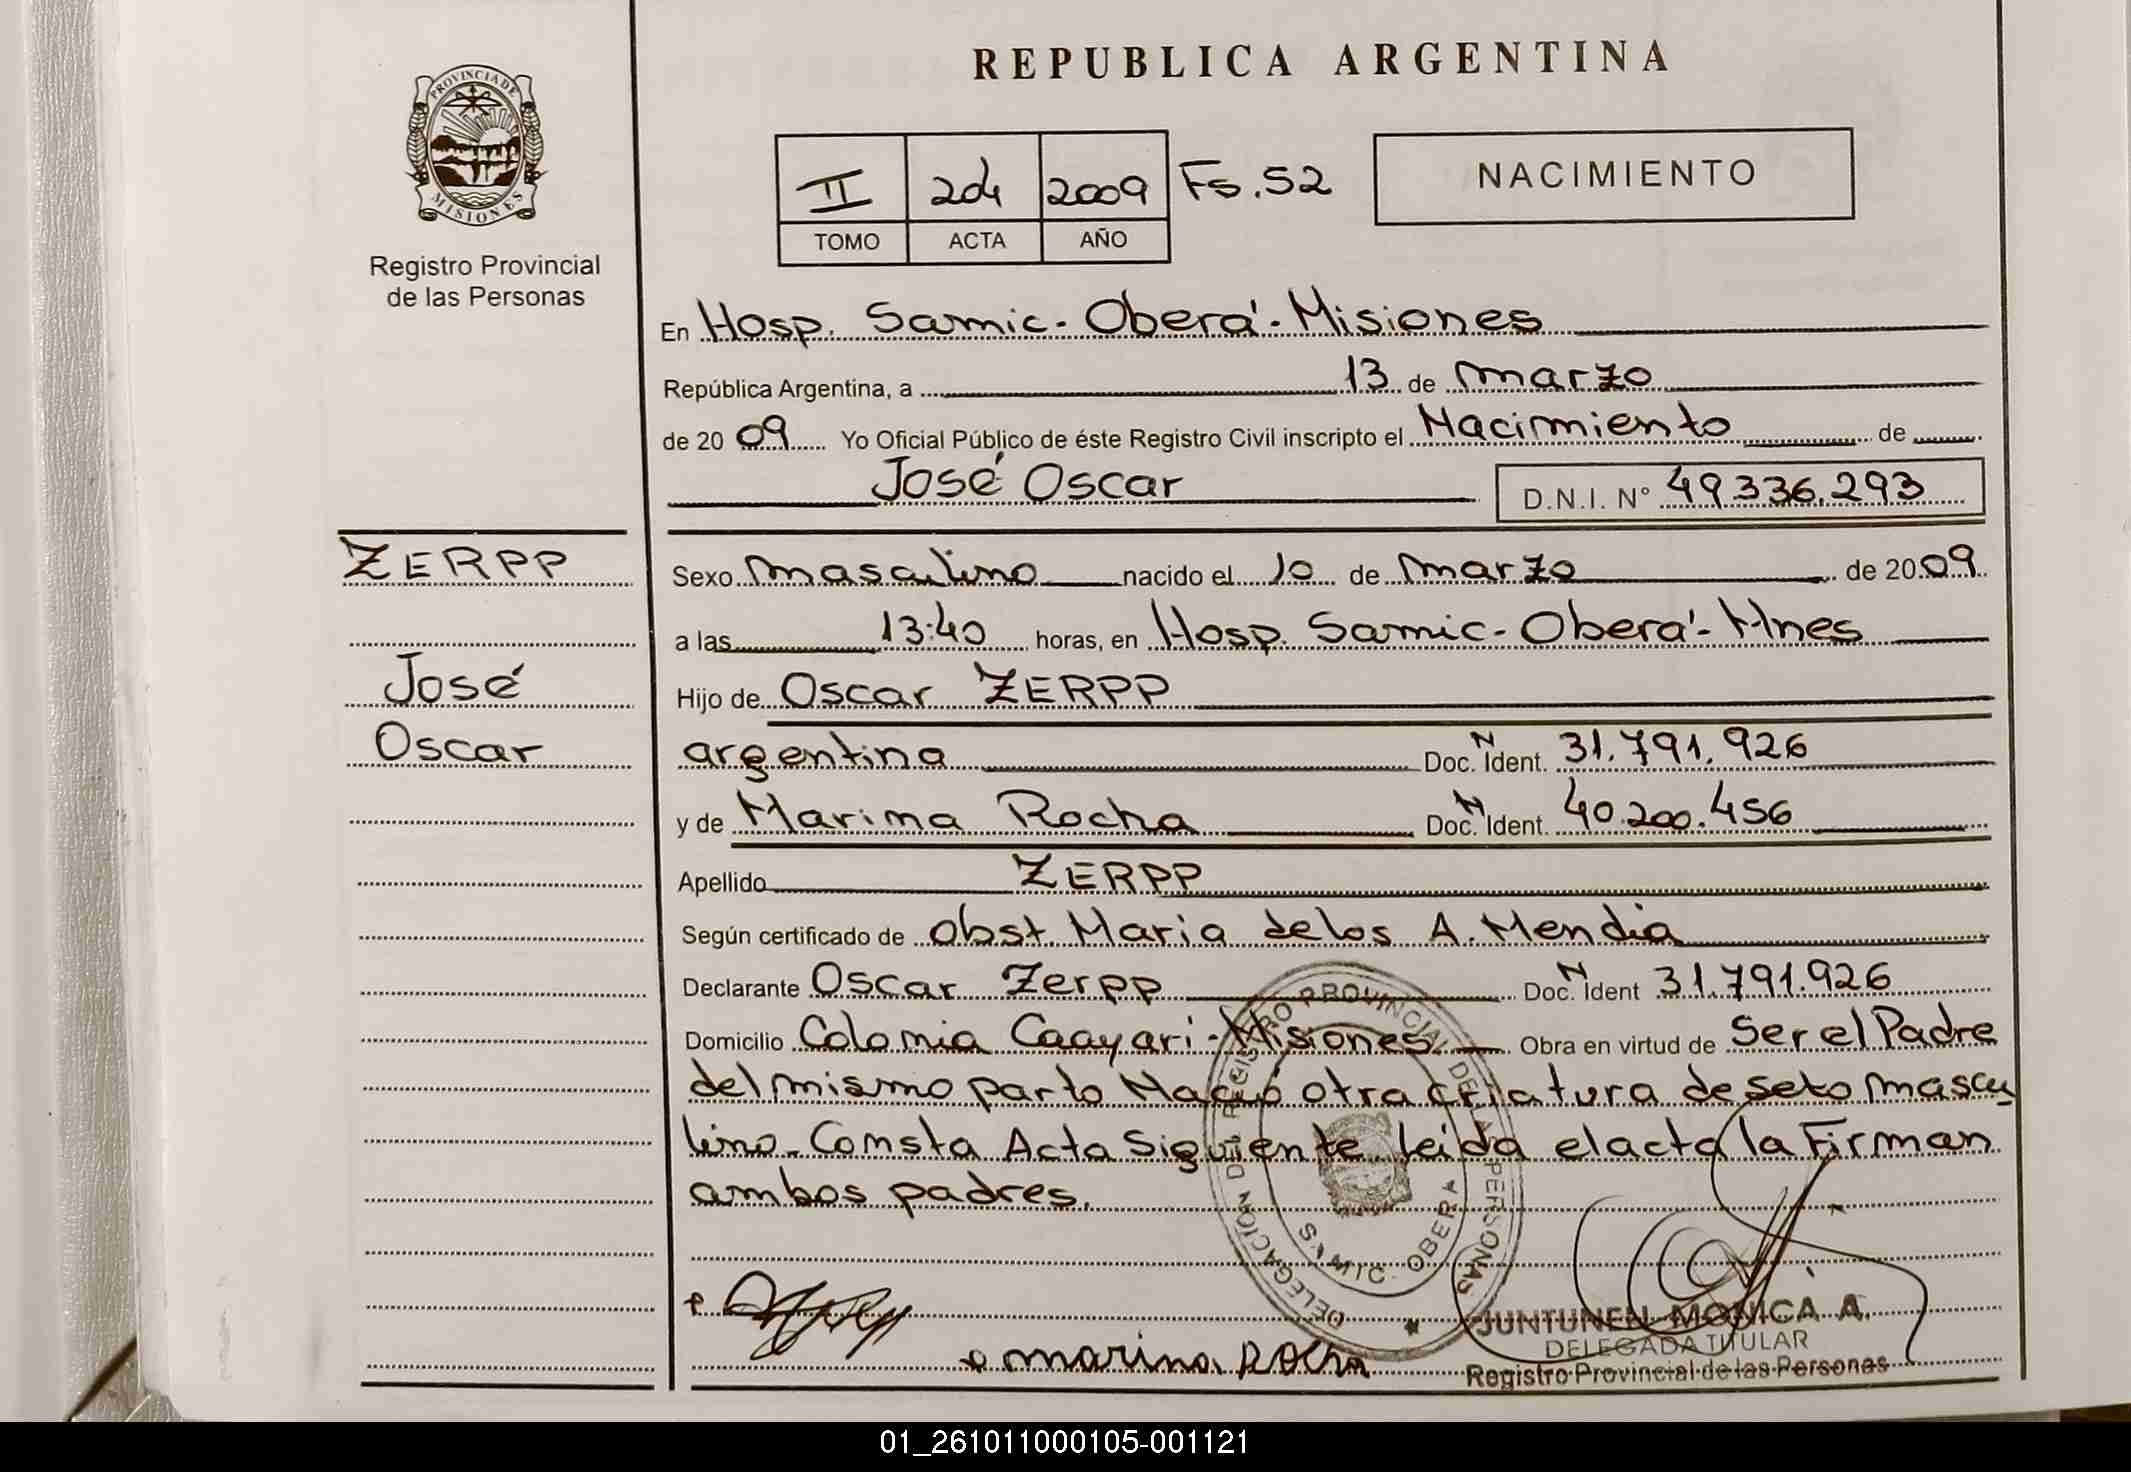 REPUBLICA ARGENTINA
PROVINCIA DE
MISIONES
Registro Provincial
de las Personas
II 204 2009 Fs.52
TOMO ACTA AÑO
NACIMIENTO
En Hosp. Samic-Oberá-Misiones
República Argentina, a 13 de marzo
de 20 09 Yo Oficial Público de éste Registro Civil inscripto el Nacimiento de
José Oscar D.N.I. N° 49.336.293
ZERPP
José
Oscar
Sexo masculino nacido el 10 de marzo de 2009
a las 13:40 horas, en Hosp. Samic-Oberá-Mnes
Hijo de Oscar ZERPP
argentina Doc. N Ident. 31.791.926
y de Marina Rocha Doc. N Ident. 40.200.456
Apellido ZERPP
Según certificado de Obst. Maria de los A. Mendia
Declarante Oscar Zerpp Doc. N Ident 31.791.926
Domicilio Colonia Caayari-Misiones Obra en virtud de Ser el Padre
del mismo parto Nació otra criatura de sexo mascu
lino-Consta Acta Siguiente leída el acta la Firman
ambos padres.
DELEGACION DEL REGISTRO PROVINCIAL DE LAS PERSONAS
SAMIC. OBERA
marina Rocha
JUNTUNEN MONICA A.
DELEGADA TITULAR
Registro Provincial de las Personas
01_261011000105-001121